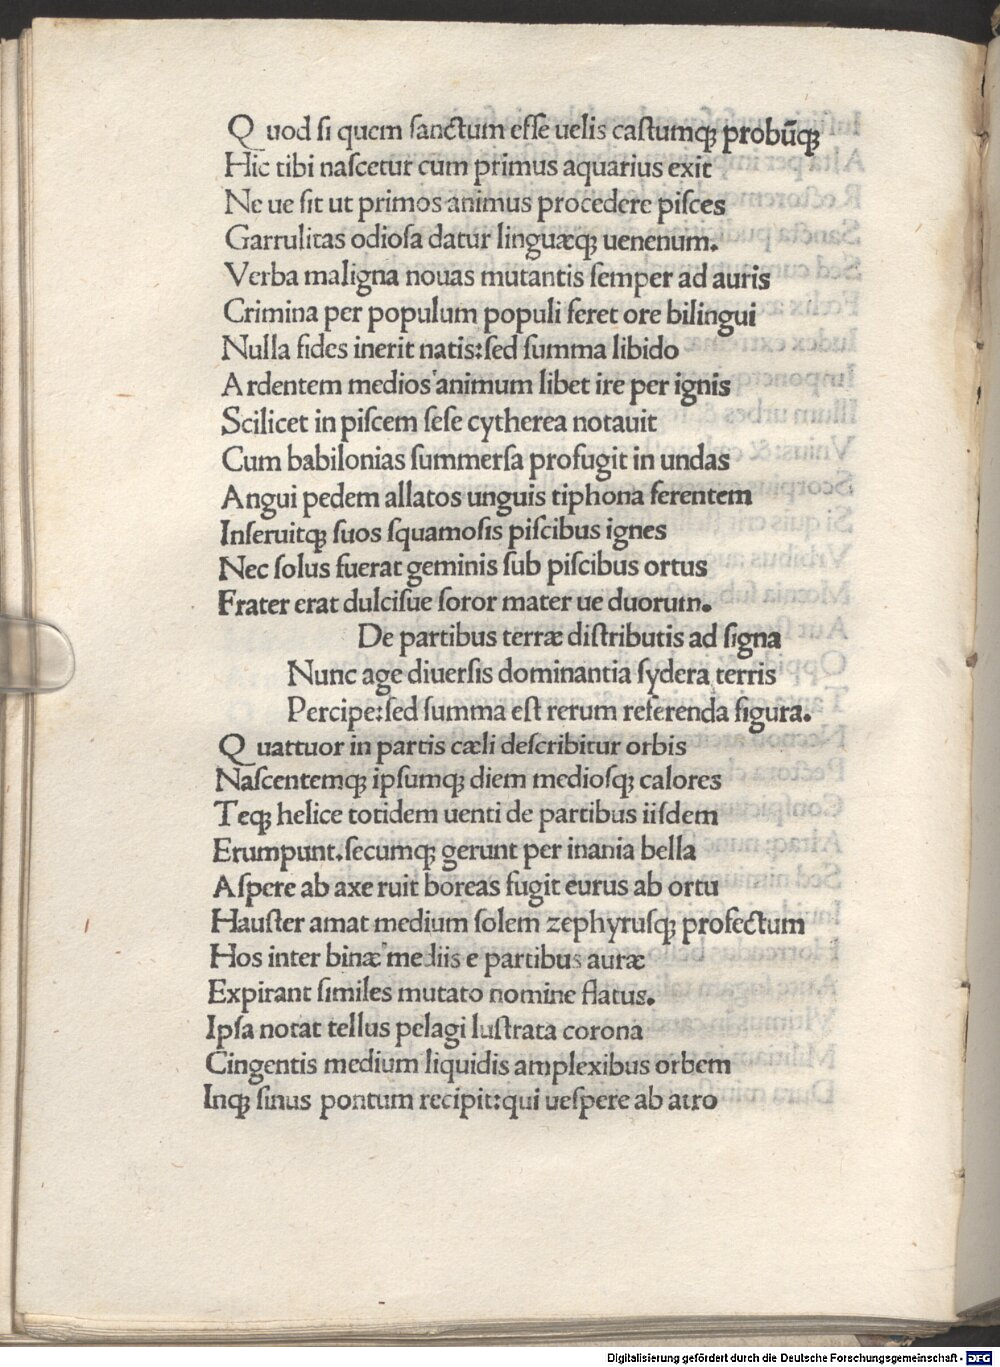 Quod si quem sanctum esse uelis castumqȝ probūqȝ
Hic tibi nascetur cum primus aquarius exit
Ne ue sit ut primos animus procedere pisces
Garrulitas odiosa datur linguæqȝ uenenum.
Verba maligna nouas mutantis semper ad auris
Crimina per populum populi feret ore bilingui
Nulla fides inerit natis:sed summa libido
Ardentem medios animum libet ire per ignis
Scilicet in piscem sese cytherea notauit
Cum babilonias summersa profugit in undas
Angui pedem allatos unguis tiphona ferentem
Inseruitqȝ suos squamosis piscibus ignes
Nec solus fuerat geminis sub piscibus ortus
Frater erat dulcisue soror mater ue duorum.
De partibus terræ distributis ad signa
Nunc age diuersis dominantia sydera terris
Percipe:sed summa est rerum referenda figura.
Quattuor in partis cæli describitur orbis
Nascentemqȝ ipsumqȝ diem mediosqȝ calores
Teqȝ helice totidem uenti de partibus iisdem
Erumpunt.secumqȝ gerunt per inania bella
Aspere ab axe ruit boreas fugit eurus ab ortu
Hauster amat medium solem zephyrusqȝ profectum
Hos inter binæ mediis e partibus auræ
Expirant similes mutato nomine flatus.
Ipsa notat tellus pelagi lustrata corona
Cingentis medium liquidis amplexibus orbem
Inqȝ sinus pontum recipit:qui uespere ab atro
Digitalisierung gefördert durch die Deutsche Forschungsgemeinschaft - DFG